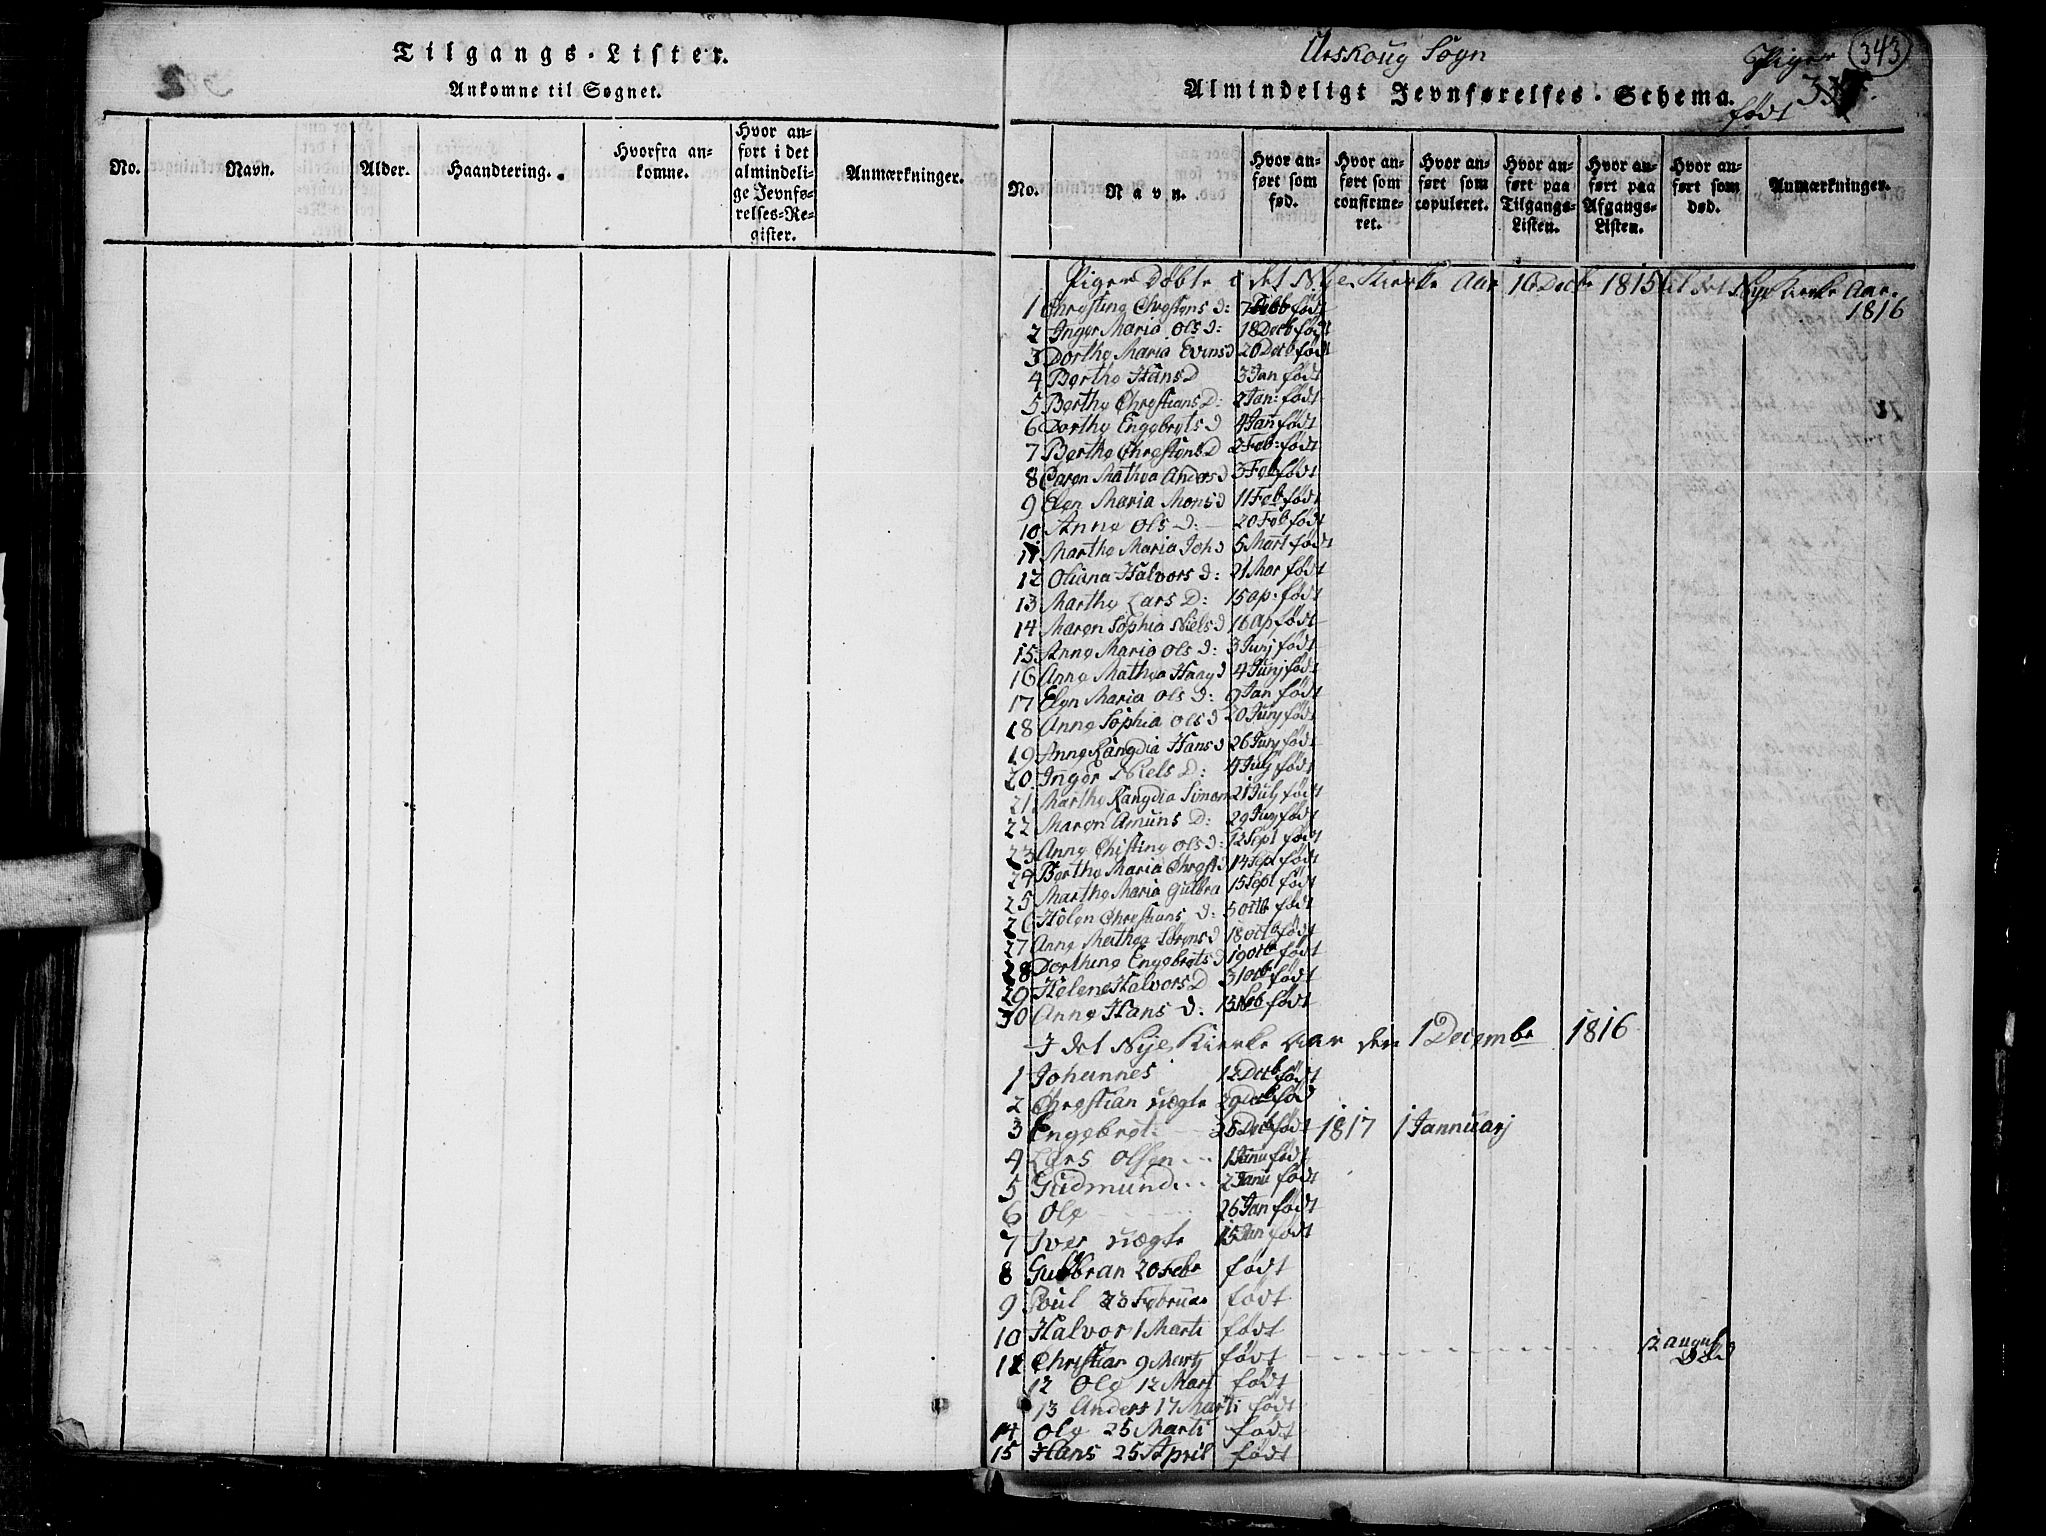 Tilgangs-Lister.
Ankomne til Sognet.
No.
Navn.
Alder.
Haandtering.
Hvorfra an-
komne.
Hvor an-
ført i det
almindeli-
ge Jevnfø-
relses-Re-
gister.
Anmærkninger.
Urskoug Sogn
Piger
343
født
Almindeligt Jevnførelses-Schema.
No.
Navn.
Hvor an-
ført som
fød.
Hvor an-
ført som
confirme-
ret.
Hvor an-
ført som
copuleret.
Hvor an-
ført paa
Tilgangs-
Listen.
Hvor an-
ført paa
Afgangs-
Listen.
Hvor an-
ført som
død.
Anmærkninger.
Piger Døbte i det Nye Kierke Aar 10 Decbr 1815 til det Nye Kirke Aar.
1816
1 Christine Christens D: 7 Decb født
2 Inger Maria Ols D: 18 Decb født
3 Dorthe Maria Evens D 20 Decb født
4 Berthe Hans D 3 Jan født
5 Berthe Christians D: 2 Jan: født
6 Dorthe Engebrets D 4 Jan født
7 Berthe Christens D 2 Feb: født
8 Caren Mathea Anders D 3 Feb født
9 Elen Maria Mons D 11 Feb født
10 Anne Ols D: 20 Feb født
11 Marthe Maria Joh D 5 Mart født
12 Oliana Halvors D: 21 Mar født
13 Marthe Lars D: 15 ap: født
14 Maren Sophia Niels D 16 Ap født
15 Anne Maria Ols D: 3 Junj født
16 Anne Mathea Haag D 4 Junj født
17 Elen Maria Ols D: 9 Jan født
18 Anne Sophia Ols D 20 Junj født
19 Anne Rangdia Hans D 26 Junj født
20 Inger Niels D: 4 July født
21 Marthe Rangdia Simon 21 July født
22 Maren Amuns D: 29 født
23 Anne Christine Ols D: 12 Sept født
24 Berthe Maria Christi D 14 Sept født
25 Marthe Maria Gulbra 15 Sept født
26 Helen Christians D: 5 octb født
27 Anne Mathea Sørens D 18 octb født
28 Dorthine Engebrets D 19 octb født
29 Helene Halvors D 31 octb født
30 Anne Hans D: 13 født
I det Nye Kierke Aar den 1 Decembe 1816
1 Johannes 12 Decb født
2 Christian uægte 20 Decb fød
3 Engebret: 25 Decb født 1817 1 Jannuarj
4 Lars Olsen 1 Janu født
5 Gudmund 2 Janu født
6 Ole 26 Jan født
7 Iver uægte 15 Jan født
8 Gulbran 20 Febr født
9 Poul 23 Februar født
10 Halvor 1 Marti født
11 Christian 9 Martj født 12 august død
12 Ole 12 Mart født
13 Anders 17 Marti født
14 Ole 25 Marti født
15 Hans 25 April født